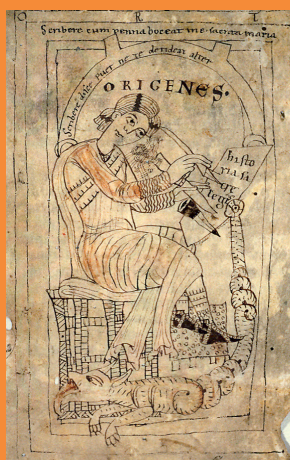 Scribere cum penna doceat me sancta maria
Scribere disce puer ne te derideat alter
ORIGENES·
histo
ria si